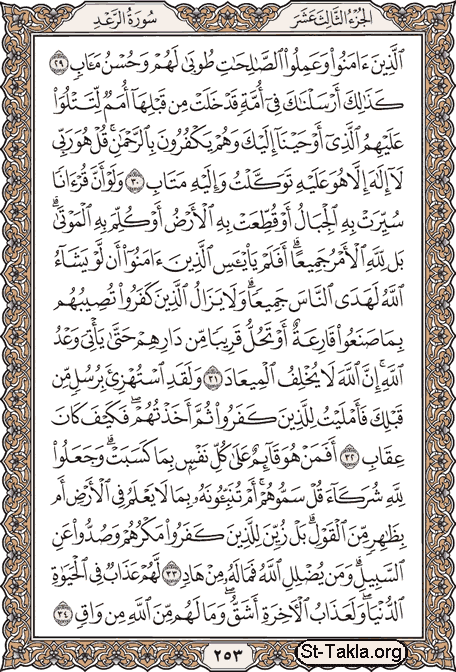 سُورَةُ الرَّعْدِ الجُزْءُ الثَّالِثَ عَشَرَ
الَّذِينَ ءَامَنُوا وَعَمِلُوا الصَّالِحَاتِ طُوبَىٰ لَهُمْ وَحُسْنُ مَـَٔابٍ ٢٩
كَذَٰلِكَ أَرْسَلْنَاكَ فِىٓ أُمَّةٍ قَدْ خَلَتْ مِن قَبْلِهَآ أُمَمٌ لِّتَتْلُوَا۟
عَلَيْهِمُ الَّذِىٓ أَوْحَيْنَآ إِلَيْكَ وَهُمْ يَكْفُرُونَ بِالرَّحْمَٰنِ ۚ قُلْ هُوَ رَبِّى
لَآ إِلَٰهَ إِلَّا هُوَ عَلَيْهِ تَوَكَّلْتُ وَإِلَيْهِ مَتَابِ ٣٠ وَلَوْ أَنَّ قُرْءَانًا
سُيِّرَتْ بِهِ الْجِبَالُ أَوْ قُطِّعَتْ بِهِ الْأَرْضُ أَوْ كُلِّمَ بِهِ الْمَوْتَىٰ ۗ
بَل لِّلَّهِ الْأَمْرُ جَمِيعًا ۗ أَفَلَمْ يَا۟يْـَٔسِ الَّذِينَ ءَامَنُوٓا أَن لَّوْ يَشَآءُ
اللَّهُ لَهَدَى النَّاسَ جَمِيعًا ۗ وَلَا يَزَالُ الَّذِينَ كَفَرُوا تُصِيبُهُم
بِمَا صَنَعُوا قَارِعَةٌ أَوْ تَحُلُّ قَرِيبًا مِّن دَارِهِمْ حَتَّىٰ يَأْتِىَ وَعْدُ
اللَّهِ ۚ إِنَّ اللَّهَ لَا يُخْلِفُ الْمِيعَادَ ٣١ وَلَقَدِ اسْتُهْزِئَ بِرُسُلٍ مِّن
قَبْلِكَ فَأَمْلَيْتُ لِلَّذِينَ كَفَرُوا ثُمَّ أَخَذْتُهُمْ ۖ فَكَيْفَ كَانَ
عِقَابِ ٣٢ أَفَمَنْ هُوَ قَآئِمٌ عَلَىٰ كُلِّ نَفْسٍۭ بِمَا كَسَبَتْ ۗ وَجَعَلُوا
لِلَّهِ شُرَكَآءَ قُلْ سَمُّوهُمْ ۚ أَمْ تُنَبِّـُٔونَهُۥ بِمَا لَا يَعْلَمُ فِى الْأَرْضِ أَم
بِظَٰهِرٍ مِّنَ الْقَوْلِ ۗ بَلْ زُيِّنَ لِلَّذِينَ كَفَرُوا مَكْرُهُمْ وَصُدُّوا عَنِ
السَّبِيلِ ۗ وَمَن يُضْلِلِ اللَّهُ فَمَا لَهُۥ مِنْ هَادٍ ٣٣ لَّهُمْ عَذَابٌ فِى الْحَيَوٰةِ
الدُّنْيَا ۖ وَلَعَذَابُ الْءَاخِرَةِ أَشَقُّ ۖ وَمَا لَهُم مِّنَ اللَّهِ مِن وَاقٍ ٣٤
٢٥٣
St-Takla.org